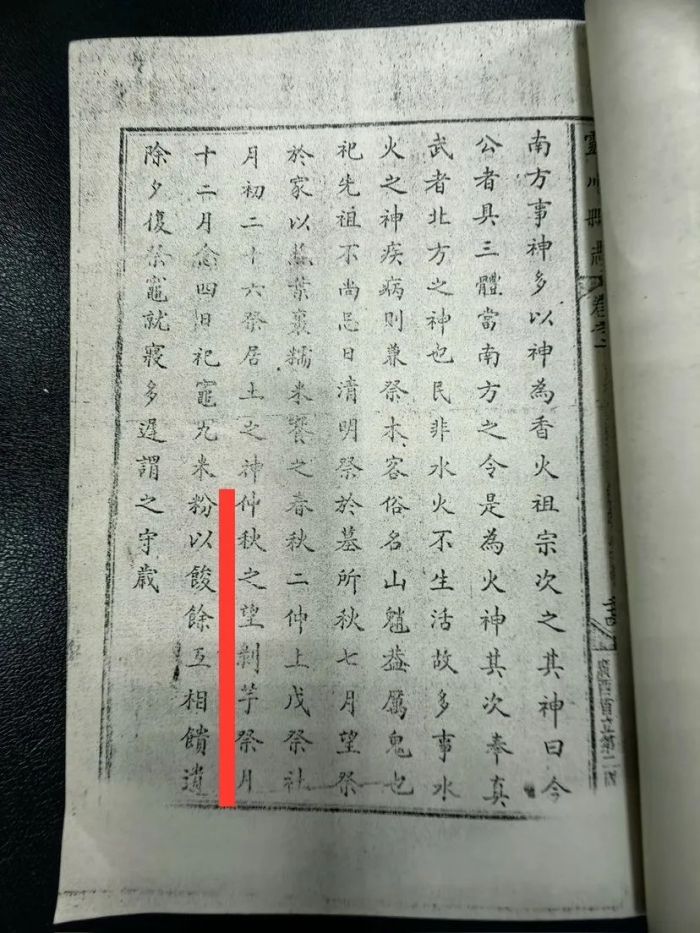 南方事神多以神為香火祖宗次之其神曰今
公者具三體當南方之令是為火神其次奉真
武者北方之神也民非水火不生活故多事水
火之神疾病則兼祭木客俗名山魈葢厲鬼也
祀先祖不尚忌日清明祭於墓所秋七月望祭
於家以葉裹糯米餐之春秋二仲上戊祭社
月初二十六祭居土之神仲秋之望剝芋祭月
十二月念四日祀竈咒米粉以餕餘互相饋遺
除夕復祭竈就寢多遲謂之守歲
靈川縣志
卷之